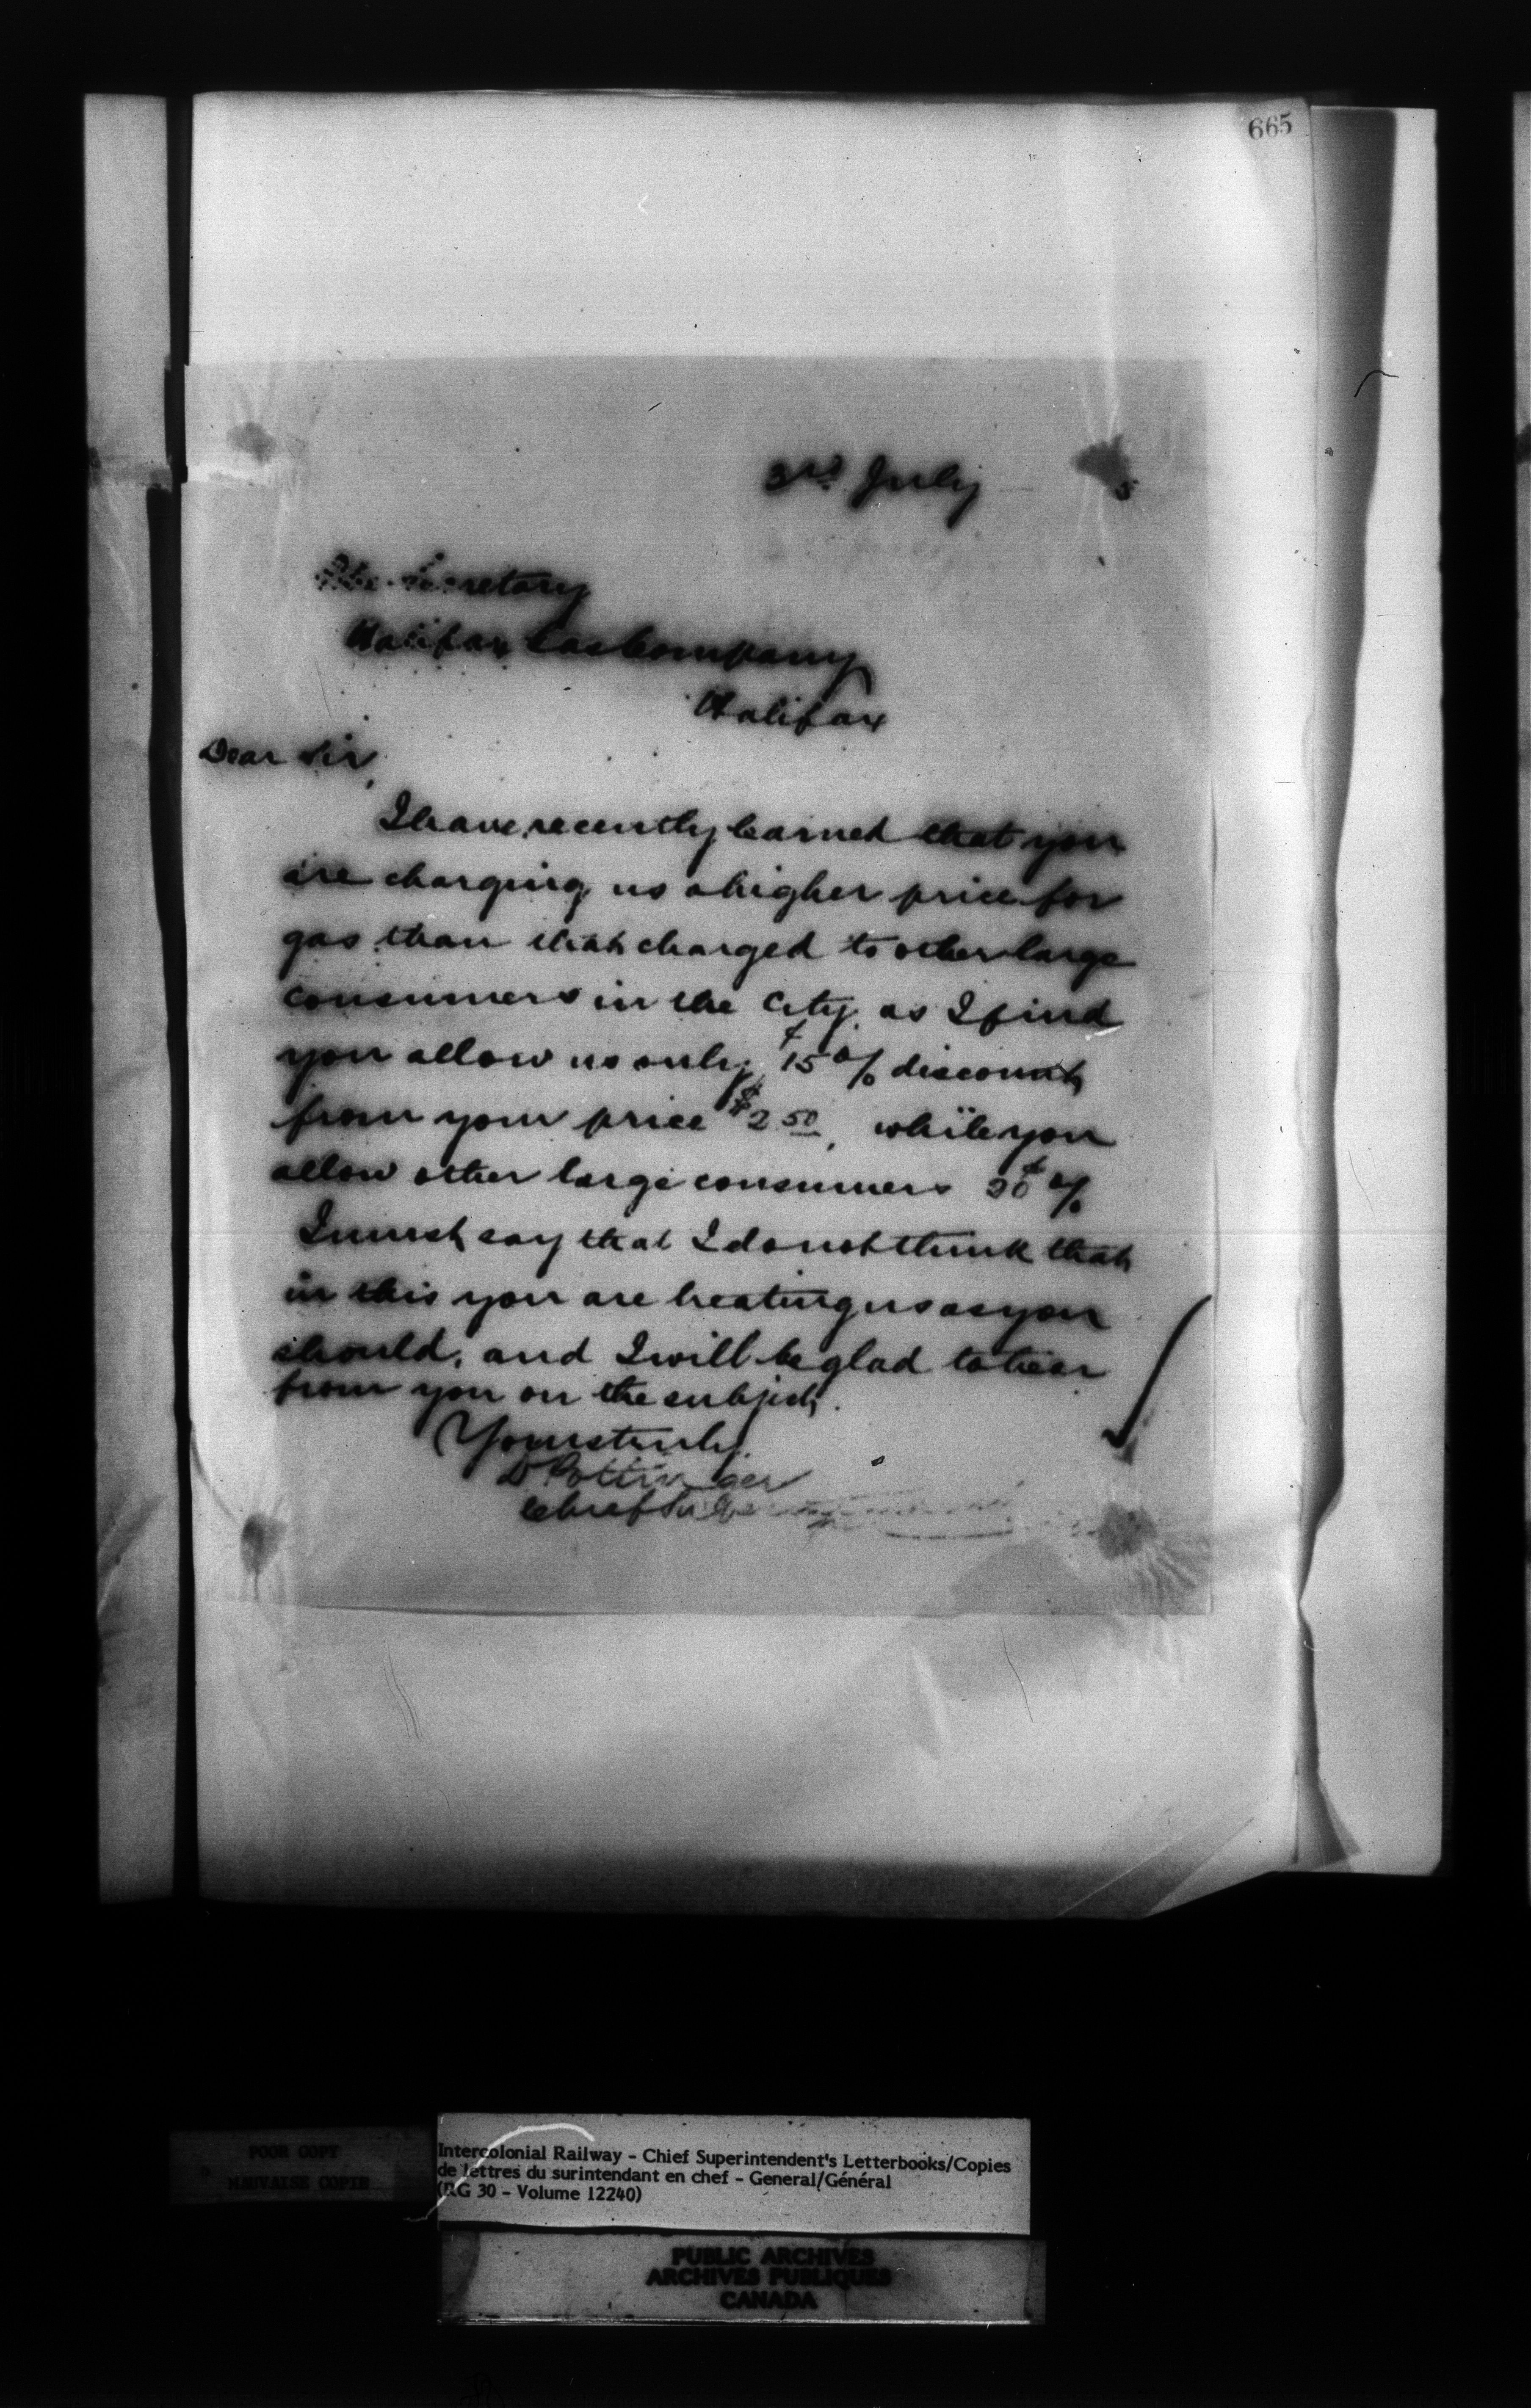 665
3rd July 5
The Secretary
Halifax Gas Company
Halifax
Dear Sir,
I have recently learned that you
are charging us a higher price for
gas than that charged to other large
consumers in the City, as I find
you allow us only 15 % discount
from your price $2.50, while you
allow other large consumers 20 %
I must say that I do not think that
in this you are treating us as you
should, and I will be glad to hear
from you on the subject.
Yours truly
D Pottinger
Chief Supt
POOR COPY
MAUVAISE COPIE
Intercolonial Railway - Chief Superintendent's Letterbooks/Copies
de lettres du surintendant en chef - General/Général
(RG 30 - Volume 12240)
PUBLIC ARCHIVES
ARCHIVES PUBLIQUES
CANADA